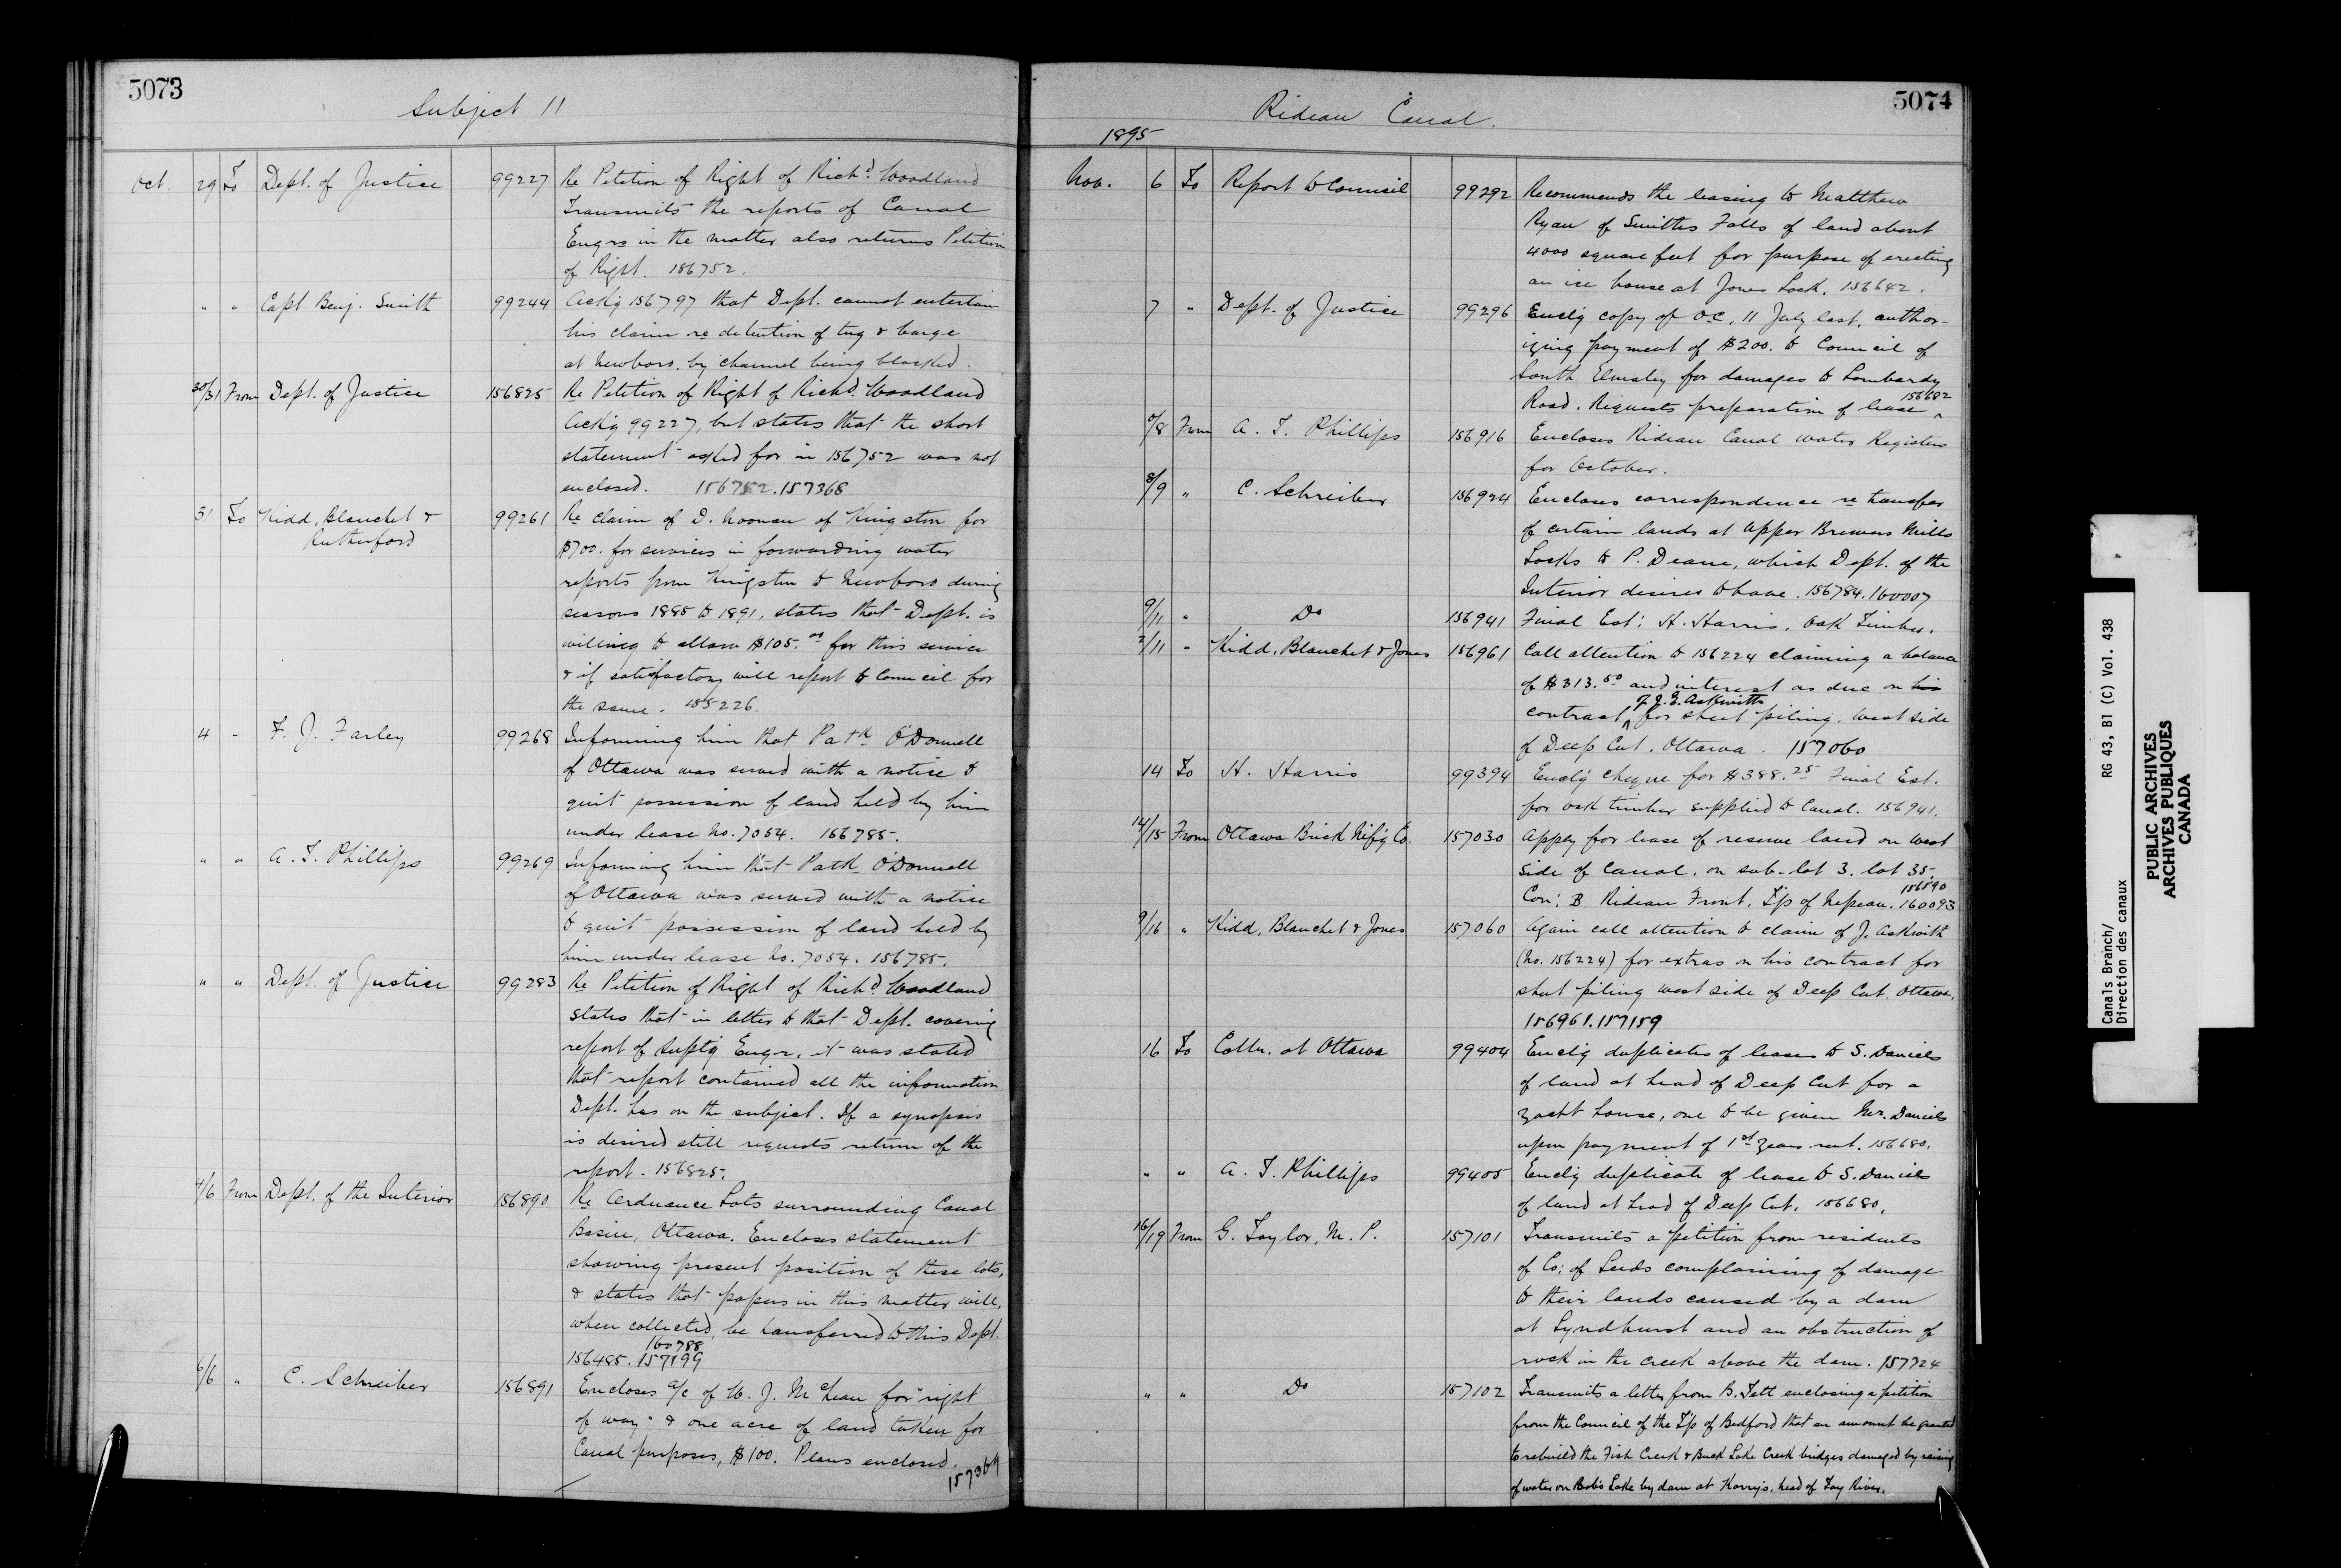 5073
Subject 11
Oct. 29 To Dept. of Justice 99227 Re Petition of Right of Richd. Woodland
Transmits the reports of Canal
Engrs in the matter also returns Petition
of Right. 156752.
" " Capt Benj. Smith 99244 Ackg 156797 that Dept. cannot entertain
his claim re detention of tug & barge
at Newboro, by channel being blocked.
30/31 From Dept. of Justice 156825 Re Petition of Right of Richd. Woodland
Ackg 99227, but states that the short
statement asked for in 156752 was not
enclosed. 156752.157368
31 To Kidd, Blanchet & 99261 Re claim of D. Noonan of Kingston for
Rutherford
$700. for services in forwarding water
reports from Kingston to Newboro during
seasons 1885 to 1891, states that Dept. is
willing to allow $105.00 for this service
& if satisfactory will report to Council for
the same. 155226.
4 " F. J. Farley 99268 Informing him that Patk O'Donnell
of Ottawa was served with a notice to
quit possession of land held by him
under lease No. 7054. 156785.
" " A. T. Phillips 99269 Informing him that Patk O'Donnell
of Ottawa was served with a notice
to quit possession of land held by
him under lease No. 7054. 156785.
" " Dept. of Justice 99283 Re Petition of Right of Richd. Woodland
States that in letter to that Dept. covering
report of Suptg Engr. it was stated
that report contained all the information
Dept. has on the subject. If a synopsis
is desired still requests return of the
report. 156825.
4/6 From Dept. of the Interior 156890 Re Ordnance Lots surrounding Canal
Basin, Ottawa. Encloses statement
showing present position of these lots,
& states that papers in this matter will,
when collected, be transferred to this Dept.
160788
156485. 157199
6/6 " C. Schreiber 156891 Encloses a/c of W. J. McLean for "right
of way" & one acre of land taken for
Canal purposes, $100. Plans enclosed.
5074
Rideau Canal.
1895
Nov. 6 To Report to Council 99292 Recommends the leasing to Matthew
Ryan of Smiths Falls of land about
4000 square feet for purpose of erecting
an ice house at Jones Lock. 156642.
7 " Dept. of Justice 99296 Enclg copy of O-C, 11 July last, author-
izing payment of $200. to Council of
South Elmsley for damages to Lombardy
Road. Requests preparation of lease 156682
7/8 From A. T. Phillips 156916 Encloses Rideau Canal water Registers
for October.
8/9 " C. Schreiber 156924 Encloses correspondence re transfer
of certain lands at Upper Brewers Mills
Locks to P. Deane, which Dept. of the
Interior desires to have. 156784.160007
9/11 " Do 156941 Final Est: H. Harris. Oak Timber.
2/11 " Kidd, Blanchet & Jones 156961 Call attention to 156224 claiming a balance
of $313.50 and interest as due on his
contract of J. G. Askwith for sheet piling, West side
of Deep Cut, Ottawa. 157060
14 To H. Harris 99394 Enclg cheque for $388.25 Final Est.
for oak timber supplied to Canal. 156941.
14/15 From Ottawa Brick Mf'g Co. 157030 Apply for lease of reserve land on West
side of Canal, on sub-lot 3, lot 35,
Con: B Rideau Front, T'p of Nepean. 156590 160093
9/16 " Kidd, Blanchet & Jones 157060 Again call attention to claim of J. Askwith
(No. 156224) for extras on his contract for
sheet piling west side of Deep Cut, Ottawa.
156961.157159
16 To Collr. at Ottawa 99404 Enclg duplicates of leases to S. Daniels
of land at head of Deep Cut for a
yacht house, one to be given Mr. Daniels
upon payment of 1st years rent. 156680.
" " A. T. Phillips 99405 Enclg duplicate of lease to S. Daniels
of land at head of Deep Cut. 156680.
16/19 From G. Taylor, M. P. 157101 Transmits a petition from residents
of Co: of Leeds complaining of damage
to their lands caused by a dam
at Lyndhurst and an obstruction of
rock in the creek above the dam. 157724
" " Do 157102 Transmits a letter from B. Tett enclosing a petition
from the Council of the T'p of Bedford that an amount be granted
to rebuild the Fish Creek & Buck Lake Creek bridges damaged by raising
of water on Bobs Lake by dam at Korrys, head of Tay River.
Canals Branch/ RG 43, B1 (C) Vol. 438
Direction des canaux
PUBLIC ARCHIVES
ARCHIVES PUBLIQUES
CANADA